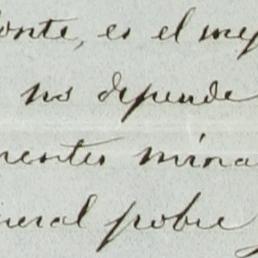 onte, es el mej
no depende
nentes mina
neral pobre